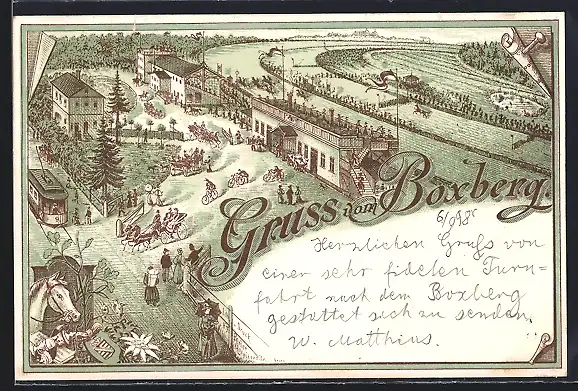 Gruss vom Boxberg.
6/9 98
Herzlichen Gruß von
einer sehr fidelen Turn-
fahrt nach dem Boxberg
gestattet sich zu senden
W. Matthias.